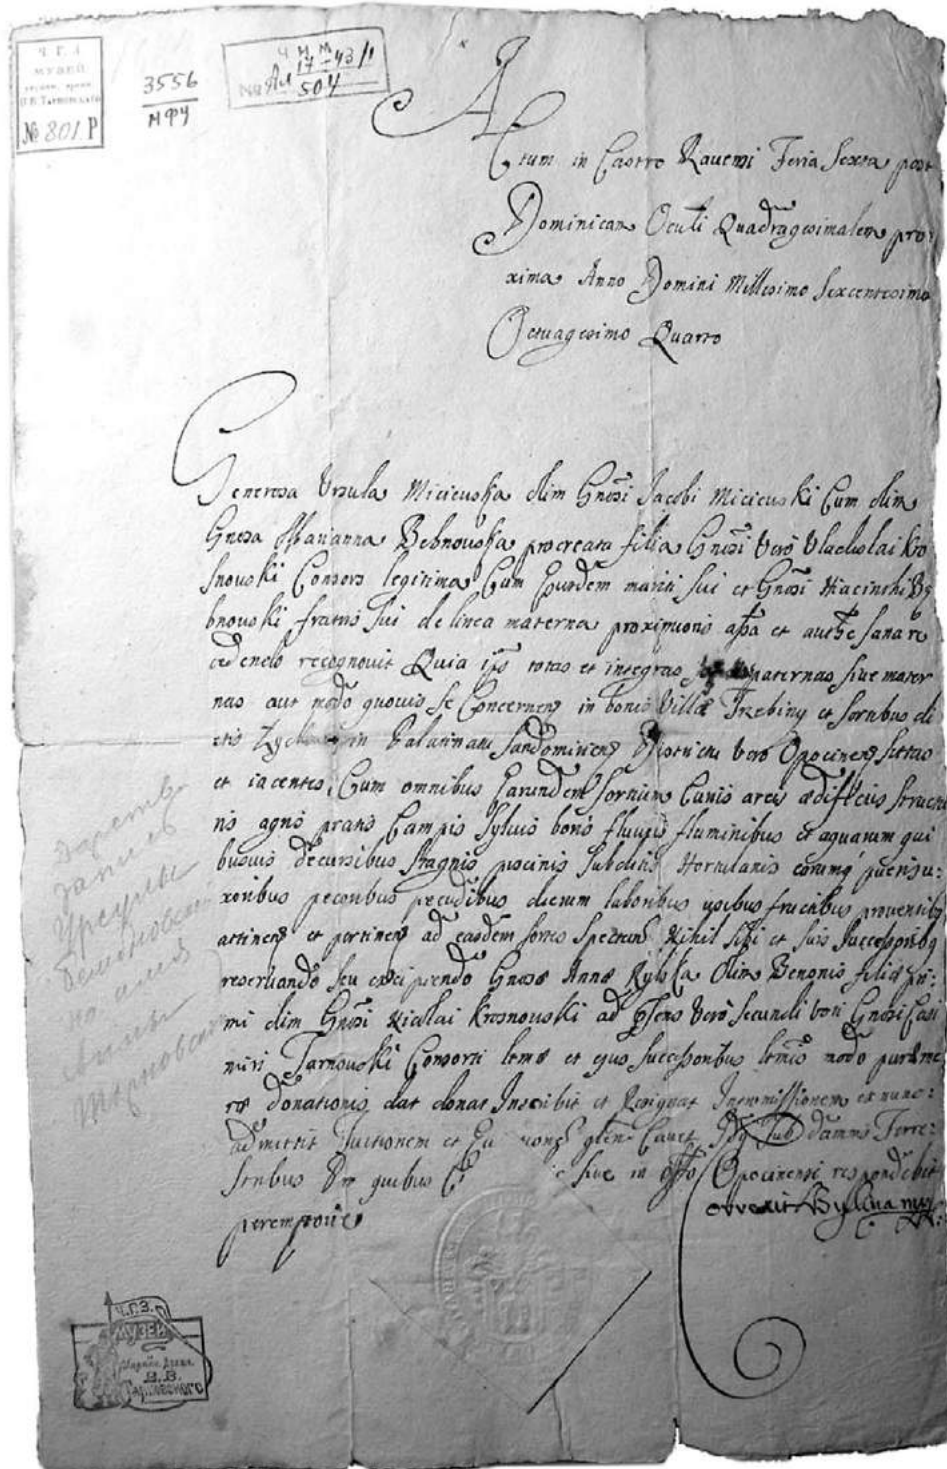 Ч. Г. З.
МУЗЕЙ
В.В. Тарновскаго
№ 801 Р
3556
МФЧ
Ч И М
№ Ал 17-43/1
504
Actum in Castro Ravensi Feria Sexta post
Dominicam Oculi Quadragesimalem pro:
xima Anno Domini Millesimo Sexcentesimo
Octuagesimo Quarto
Generosa Ursula Micieuska olim Gnosi Jacobi Micieuski Cum olim
Gnosa Marianna Bebnouska procreata filia Gnosi vero Uladislai Kro
snouski Consors legitima Cum Eiusdem mariti sui et Gnosi Hiacinthi Bę
bnouski fratris sui de linea materna proximioris assa et authe sana re
cedendo recognovit Quia ipsa totas et integras paternas siue mater
nas aut modo quouis se Concernen in bonis Villæ Trzebiny et sortibus di
ctis in Palatinatu Sandomirien Districtu vero Opocinen sittas
et iacentes, Cum omnibus Earundem sortium Curiis areis ædificiis structu
ris agris pratis Campis Syluis boris fluuys fluminibus et aquarum qui
busuis decursibus stagnis piscinis Subditis Hortulanis eorumq pueris u:
xoribus pecoribus pecudibus dierum laboribus usibus fructibus prouentibq
attinen et pertinen ad easdem sortes Spectan Nihil sibi et suis Successoribq
reseruando seu excipiendo Gnosæ Annæ Rylska Olim Benonis filiæ pri:
mi olim Gnosi Nicolai Krosnouski ad psens vero secundi voti Gnosi Casi
miri Tarnouski Consorti lemæ et eius successoribus lemis modo puræ me
ræ donationis dat donat Inscribit et Resignat Intromissionem ex nunc:
admittit Euictionem et gten Cauet Idq Sub damnis Terre:
stribus Pro quibus siue in offo Opocinensi respondebit
peremptorie
Дарств.
запись
Урсулы
на имя
Анны
Тарновской
Ч.Г.З.
МУЗЕЙ
В.В.
Тарновского